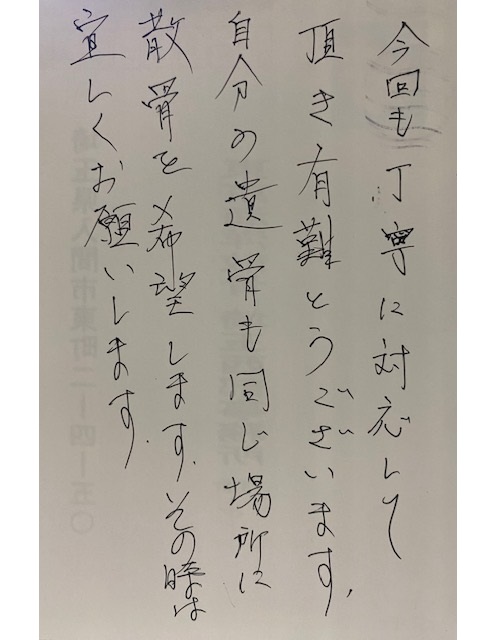 今回も丁寧に対応して
頂き有難とうございます、
自分の遺骨も同じ場所に
散骨を希望します、その時は
宜しくお願いします、